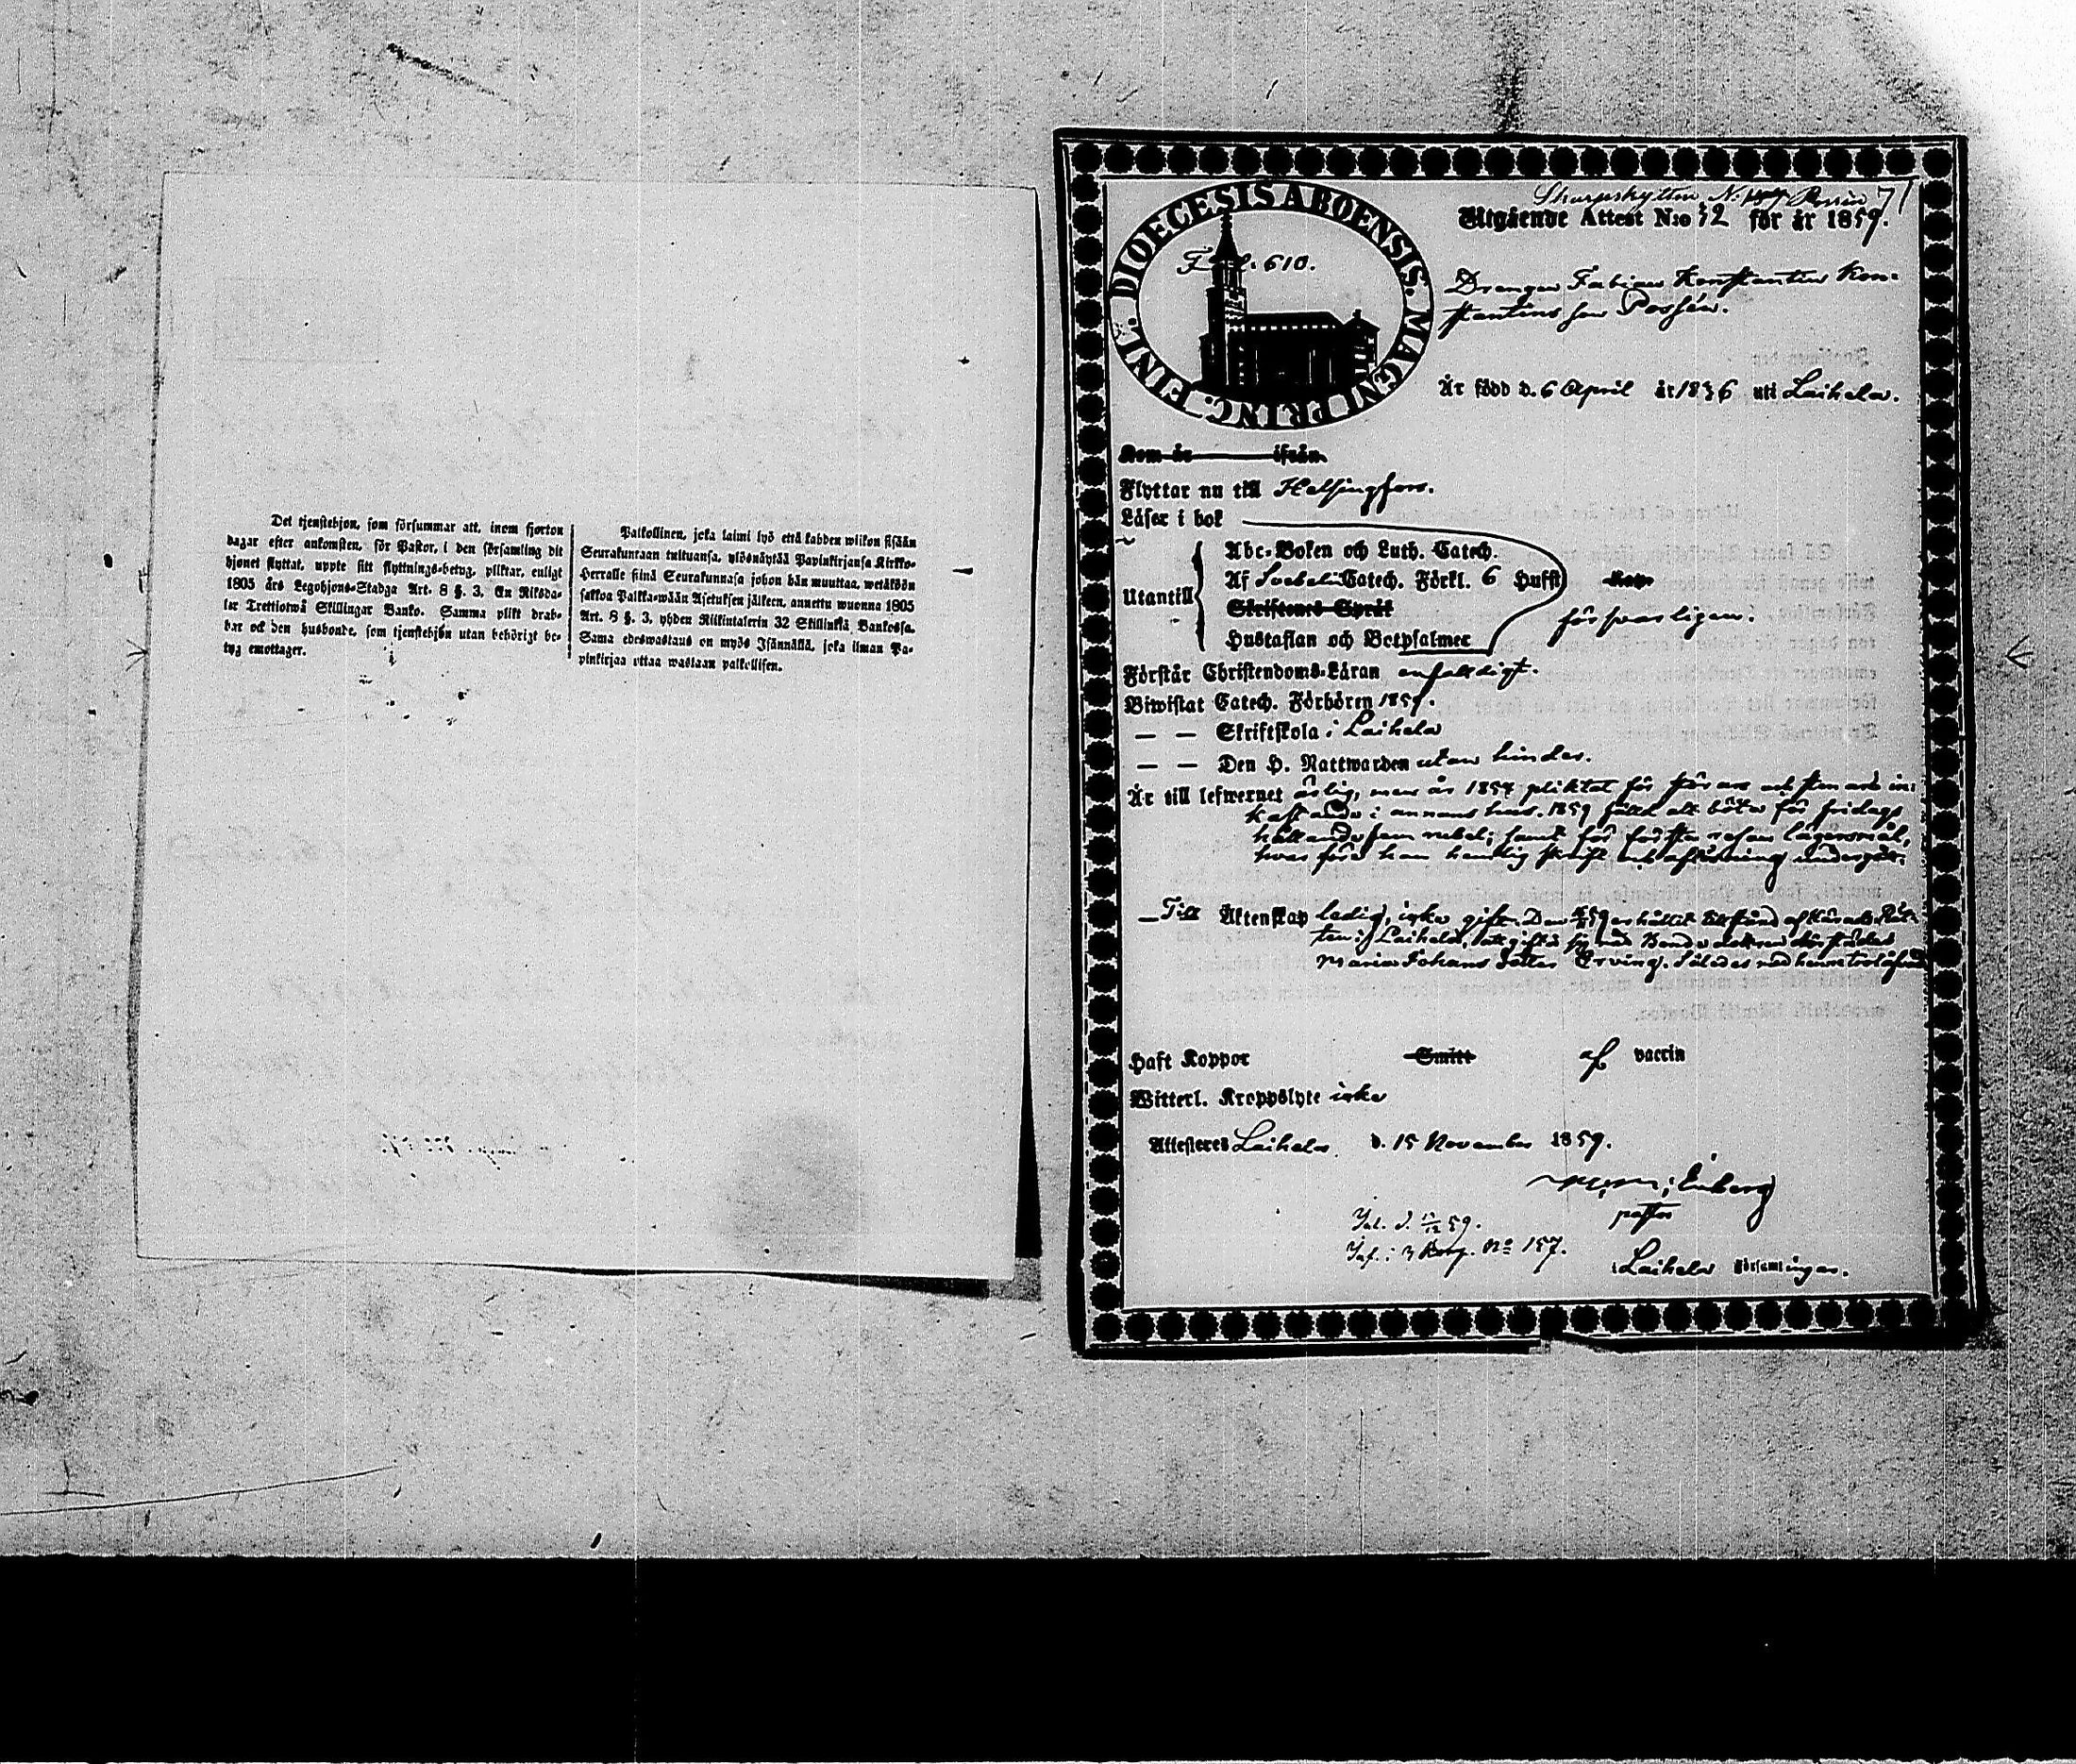 Det tjenstehjon, som försummar att, inom fjorton
dagar efter ankomsten, för Pastor, i den församling dit
hjonet flyttat, uppte sitt flyttnings-betyg, pliktar, enligt
1805 års Legohjons-Stadga Art. 8 §. 3. En Riksda-
ler Trettiotwå Skillingar Banko. Samma plikt drab-
bar ock den husbonde, som tjenstehjon utan behörigt be-
tyg emottager.
Palkollinen, joka laimi lyö että kahden wiikon sisään
Seurakuntaan tultuansa, ylösnäytää Papinkirjansa Kirkko-
Herralle siinä Seurakunnasa johon hän muuttaa, wetäköön
sakkoa Palkka-wään Asetuksen jälkeen, annettu wuonna 1805
Art. 8 §. 3, yhden Riikintalerin 32 Skillinkiä Bankossa.
Sama edeswastaus on myös Isännällä, joka ilman Pa-
pinkirjaa ottaa wastaan palkollisen.
DIOECESIS ABOENSIS. MAGNI PRINC. FINL.
Fol. 610.
Skarpskytten N:
Utgående Attest N:o 52 för år 1859.
71
Drengen Fabian Konstantin Kon-
stantins son Possén.
Är född d. 6 April år 1836 uti Laihela.
Kom år ifrån
Flyttar nu till Helsingfors.
Läser i bok
Utantill
Abc-Boken och Luth. Catech.
Af Svebelii Catech. Förkl. 6 Hufst
Skriftenes Språk
Hustaflan och Botpsalmer
försvarligen.
Förstår Christendoms-Läran enfaldigt.
Biwistat Catech. Förhören 1859.
— — Skriftskola i Laihela
— — Den H. Nattwarden utan hinder.
Är till lefwernet ärlig, men år 1857 pliktat för och stenars in-
kastande i annans hus. 1859 fälld att böta för fridags
hållande fem rubel; samt för första resan lägersmål,
hvarföre han hemlig skrift och aflösning undergått.
— Till Äktenskap ledig, icke gift. Den 59 erhållit tillstånd af Härads Rät-
ten i Laihela, att gifta sig med Bonde dottren därstädes
Maria Johans dotter Erving. Således med henne trolofvad
Haft Koppor Smitt af vaccin
Witterl. Kroppslyte icke
Attesteras Laihela d. 15 November 1859.
pastor
i Laihela Församlingar.
Inl. d. 59.
N:o 157.